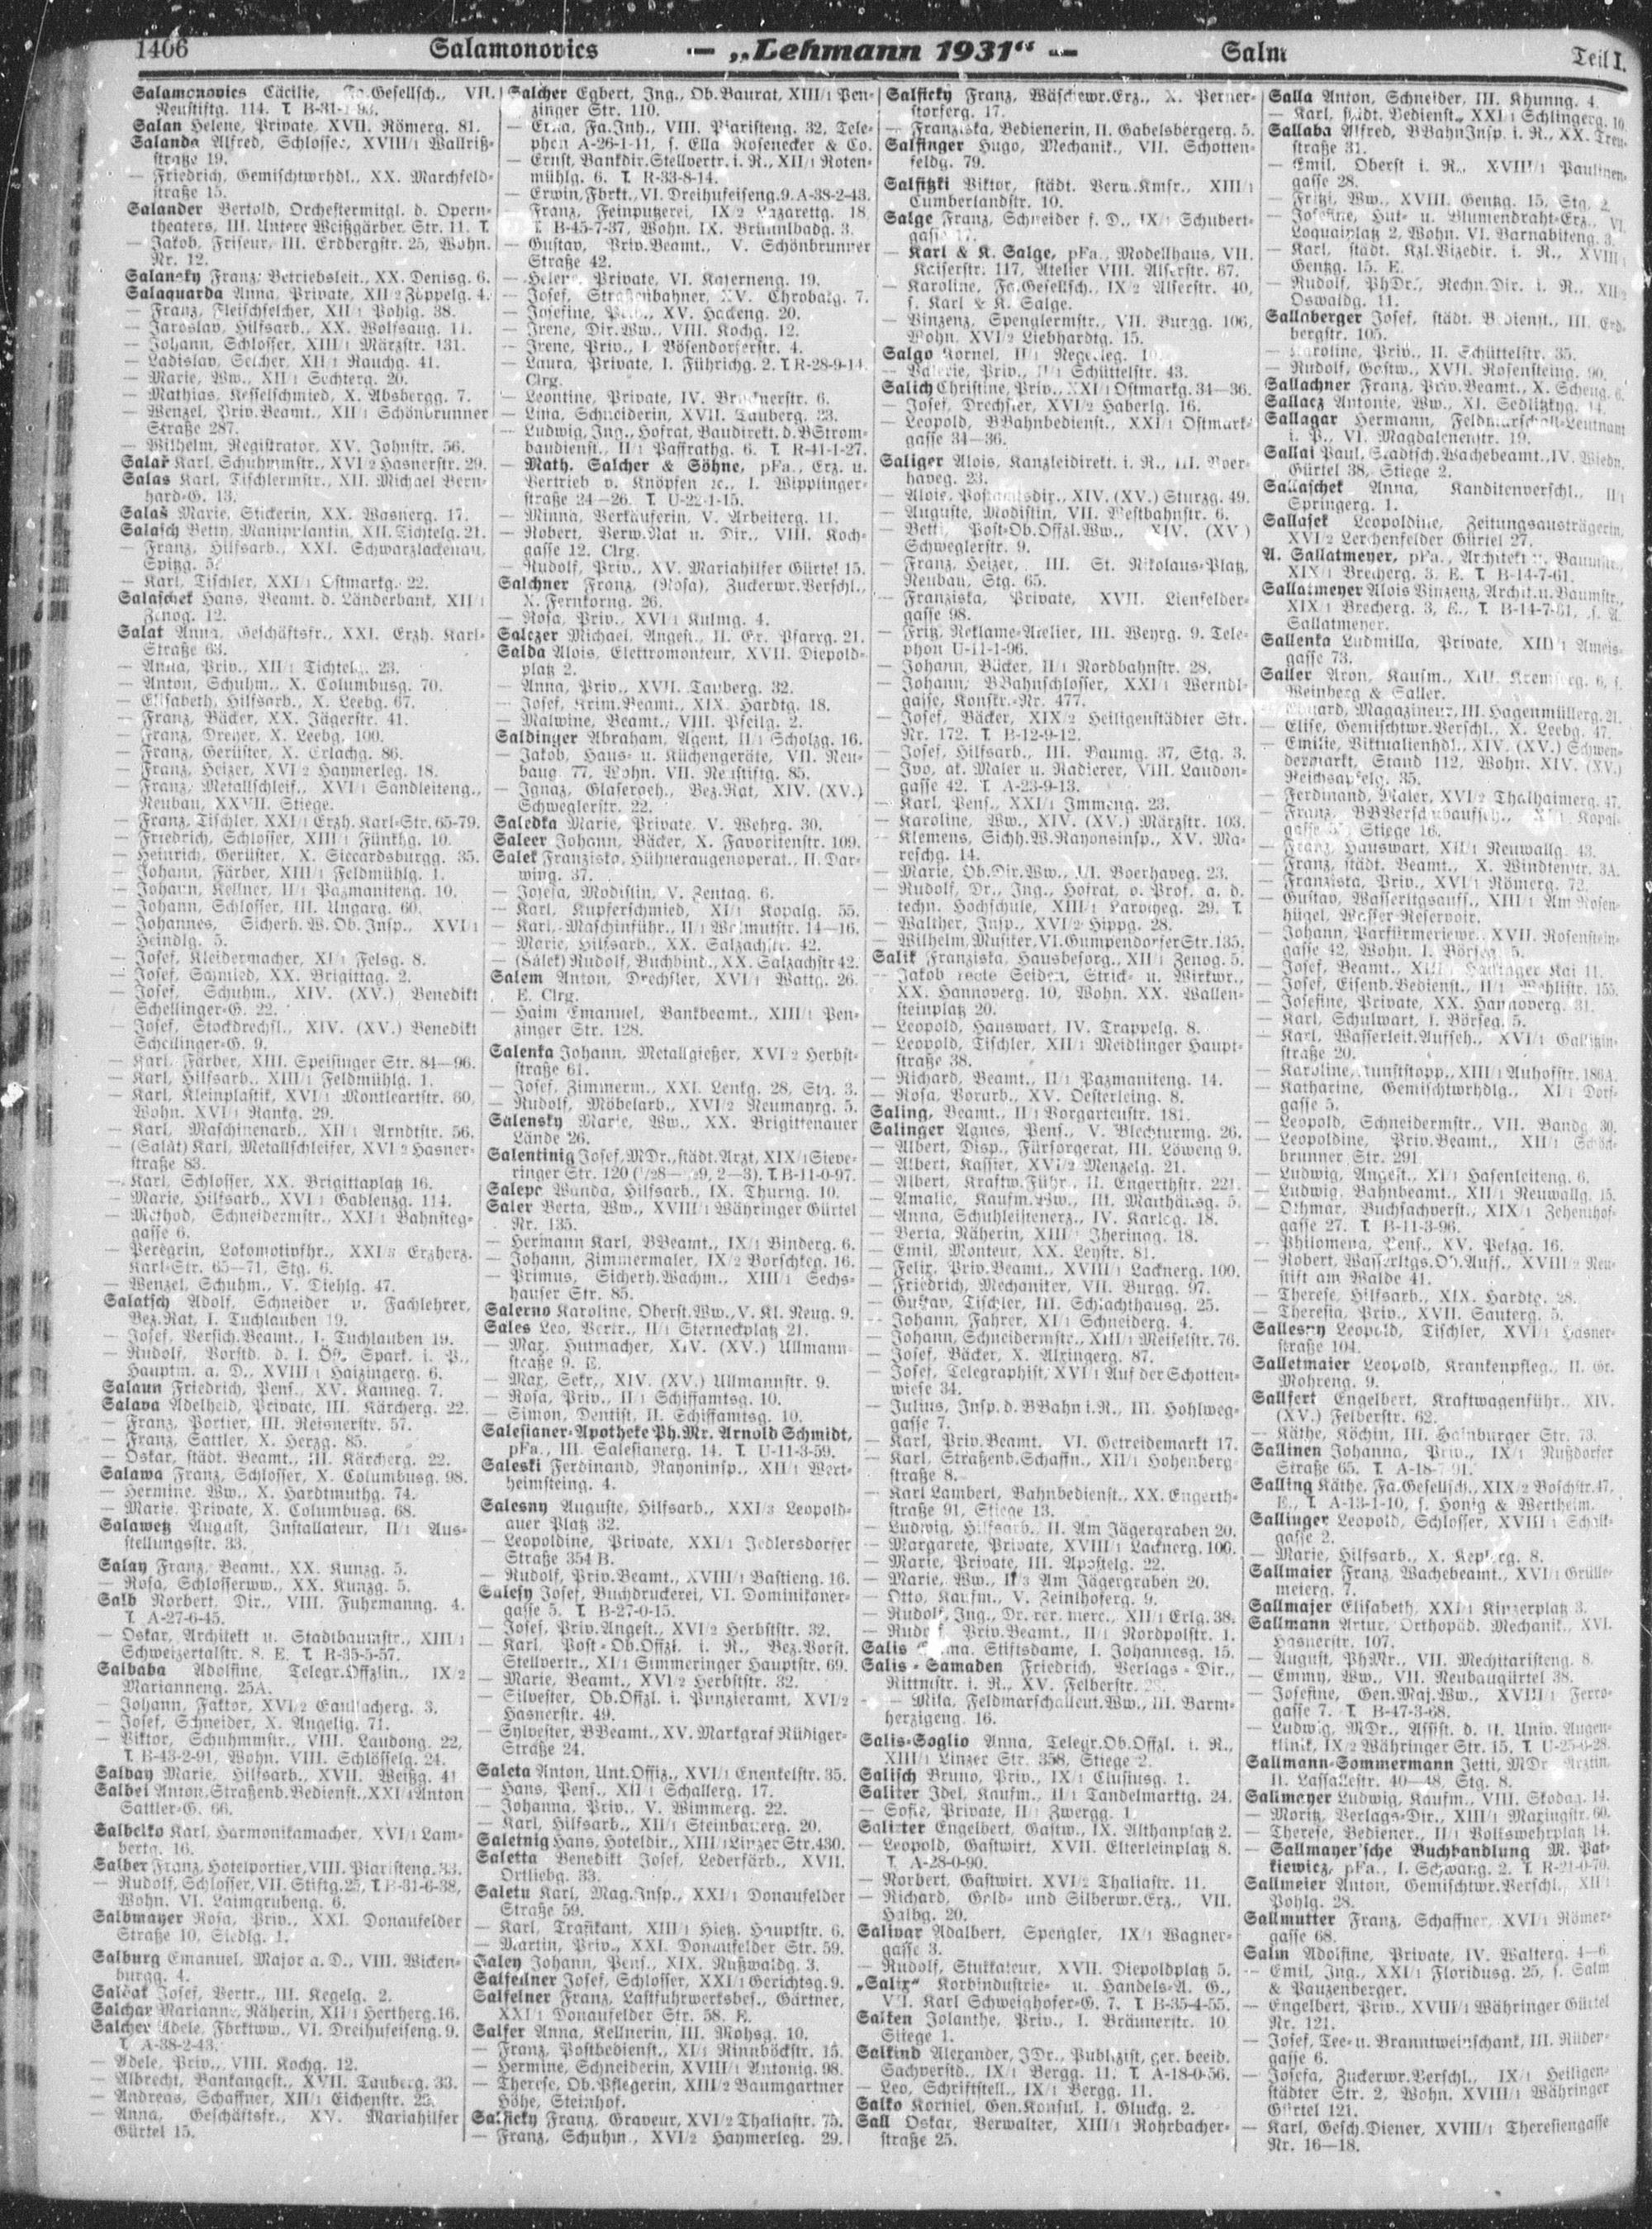 1406 Salamonovics — „Lehmann 1931“ — Salm Teil I.
Salamonovics Cäcilie, Gesellsch., VII.
Neustiftg. 114. T. B-31-
Salan Helene, Private, XVII. Römerg. 81.
Salanda Alfred, Schlosser, XVIII/1 Wallriß-
straße 19.
— Friedrich, Gemischtwrhdl., XX. Marchfeld-
straße 15.
Salander Bertold, Orchestermitgl. d. Opern-
theaters, III. Untere Weißgärber Str. 11. T.
— Jakob, Friseur, III. Erdbergstr. 25, Wohn.
Nr. 12.
Salansky Franz, Betriebsleit., XX. Denisg. 6.
Salaquarda Anna, Private, XII/2 Zöppelg. 4.
— Franz, Fleischselcher, XII/1 Pohlg. 38.
— Jaroslav, Hilfsarb., XX. Wolfsaug. 11.
— Johann, Schlosser, XIII/1 Märzstr. 131.
— Ladislav, Selcher, XII/1 Rauchg. 41.
— Marie, Ww., XII/1 Suchterg. 20.
— Mathias, Kesselschmied, X. Absbergg. 7.
— Wenzel, Priv.Beamt., XII/1 Schönbrunner
Straße 287.
— Wilhelm, Registrator, XV. Johnstr. 56.
Salař Karl, Schuhmmstr., XVI/2 Hasnerstr. 29.
Salas Karl, Tischlermstr., XII. Michael Bern-
hard-G. 13.
Salaš Marie, Stickerin, XX. Wasnerg. 17.
Salasch Betty, Maniprlantin, XII. Tichtelg. 21.
— Franz, Hilfsarb., XXI. Schwarzlackenau,
Spitzg. 5.
— Karl, Tischler, XXI/1 Ostmarkg. 22.
Salaschek Hans, Beamt. d. Länderbank, XII/1
Zenog. 12.
Salat Anna, Geschäftsfr., XXI. Erzh. Karl-
Straße 63.
— Anna, Priv., XII/1 Tichtelg. 23.
— Anton, Schuhm., X. Columbusg. 70.
— Elisabeth, Hilfsarb., X. Leebg. 67.
— Franz, Bäcker, XX. Jägerstr. 41.
— Franz, Dreher, X. Leebg. 100.
— Franz, Gerüster, X. Erlachg. 86.
— Franz, Heizer, XVI/2 Haymerleg. 18.
— Franz, Metallschleif., XVI/1 Sandleiteng.,
Neubau, XXVII. Stiege.
— Franz, Tischler, XXI/1 Erzh. Karl-Str. 65-79.
— Friedrich, Schlosser, XIII/1 Fünkhg. 10.
— Heinrich, Gerüster, X. Siccardsburgg. 35.
— Johann, Färber, XIII/1 Feldmühlg. 1.
— Johann, Kellner, II/1 Pazmaniteng. 10.
— Johann, Schlosser, III. Ungarg. 60.
— Johannes, Sicherh.W.Ob.Insp., XVI/1
Heindlg. 5.
— Josef, Kleidermacher, XI/1 Felsg. 8.
— Josef, Schmied, XX. Brigittag. 2.
— Josef, Schuhm., XIV. (XV.) Benedikt
Schellinger-G. 22.
— Josef, Stockdrechsl., XIV. (XV.) Benedikt
Schellinger-G. 9.
— Karl, Färber, XIII. Speisinger Str. 84—96.
— Karl, Hilfsarb., XIII/1 Feldmühlg. 1.
— Karl, Kleinplastik, XVI/1 Montleartstr. 60,
Wohn. XVI/1 Rankg. 29.
— Karl, Maschinenarb., XII/1 Arndtstr. 56.
— (Salát) Karl, Metallschleifer, XVI/2 Hasner-
straße 83.
— Karl, Schlosser, XX. Brigittaplatz 16.
— Marie, Hilfsarb., XVI/1 Gablenzg. 114.
— Method, Schneidermstr., XXI/1 Bahnsteg-
gasse 6.
— Peregrin, Lokomotivfhr., XXI/3 Erzherz.
Karl-Str. 65—71, Stg. 6.
— Wenzel, Schuhm., V. Diehlg. 47.
Salatsch Adolf, Schneider u. Fachlehrer,
Bez.Rat, I. Tuchlauben 19.
— Josef, Versich.Beamt., I. Tuchlauben 19.
— Rudolf, Vorstd. d. I. Öst. Spark. i. P.,
Hauptm. a. D., XVIII/1 Haizingerg. 6.
Salaun Friedrich, Pens., XV. Kanneg. 7.
Salava Adelheid, Private, III. Kärcherg. 22.
— Franz, Portier, III. Reisnerstr. 57.
— Franz, Sattler, X. Herzg. 85.
— Oskar, städt. Beamt., III. Kärcherg. 22.
Salawa Franz, Schlosser, X. Columbusg. 98.
— Hermine, Ww., X. Hardtmuthg. 74.
— Marie, Private, X. Columbusg. 68.
Salawetz August, Installateur, II/1 Aus-
stellungsstr. 33.
Salay Franz, Beamt., XX. Kunzg. 5.
— Rosa, Schlosserww., XX. Kunzg. 5.
Salb Norbert, Dir., VIII. Fuhrmanng. 4.
T. A-27-6-45.
— Oskar, Architekt u. Stadtbaumstr., XIII/1
Schweizertalstr. 8. E. T. R-35-5-57.
Salbaba Adolfine, Telegr.Offzlin., IX/2
Marianneng. 25A.
— Johann, Faktor, XVI/2 Gaullacherg. 3.
— Josef, Schneider, X. Angelig. 71.
— Viktor, Schuhmmstr., VIII. Laudong. 22,
T. B-43-2-91, Wohn. VIII. Schlösselg. 24.
Salbay Marie, Hilfsarb., XVII. Weißg. 41.
Salbei Anton, Straßenb.Bedienst., XXI/1 Anton
Sattler-G. 66.
Salbelko Karl, Harmonikamacher, XVI/1 Lam-
bertg. 16.
Salber Franz, Hotelportier, VIII. Piaristeng. 33.
— Rudolf, Schlosser, VII. Stiftg. 25, T. B-31-6-38,
Wohn. VI. Laimgrubeng. 6.
Salbmayer Rosa, Priv., XXI. Donaufelder
Straße 10, Siedlg. 1.
Salburg Emanuel, Major a. D., VIII. Wicken-
burgg. 4.
Salčak Josef, Vertr., III. Kegelg. 2.
Salchar Marianne, Näherin, XII/1 Hertherg. 16.
Salcher Adele, Fbrktww., VI. Dreihufeiseng. 9.
T. A-38-2-43.
— Adele, Priv., VIII. Kochg. 12.
— Albrecht, Bankangest., XVII. Tauberg. 33.
— Andreas, Schaffner, XII/1 Eichenstr. 23.
— Anna, Geschäftsfr., XV. Mariahilfer
Gürtel 15.
Salcher Egbert, Ing., Ob.Baurat, XIII/1 Pen-
zinger Str. 110.
— Erna, Fa.Inh., VIII. Piaristeng. 32, Tele-
phon A-26-1-11, s. Ella Rosenecker & Co.
— Ernst, Bankdir.Stellvertr. i. R., XII/1 Roten-
mühlg. 6. T. R-33-8-14.
— Erwin, Fbrkt., VI. Dreihufeiseng. 9. A-38-2-43.
— Franz, Feinputzerei, IX/2 Lazarettg. 18,
T. B-45-7-37, Wohn. IX. Brünnlbadg. 3.
— Gustav, Priv.Beamt., V. Schönbrunner
Straße 42.
— Helene, Private, VI. Kaserneng. 19.
— Josef, Straßenbahner, XV. Chrobakg. 7.
— Josefine, XV. Hackeng. 20.
— Irene, Dir.Ww., VIII. Kochg. 12.
— Irene, Priv., I. Bösendorferstr. 4.
— Laura, Private, I. Führichg. 2. T. R-28-9-14.
Clrg.
— Leontine, Private, IV. Brucknerstr. 6.
— Lina, Schneiderin, XVII. Tauberg. 23.
— Ludwig, Ing., Hofrat, Baudirekt. d. BStrom-
baudienst., II/1 Paffrathg. 6. T. R-41-1-27.
— Math. Salcher & Söhne, pFa., Erz. u.
Vertrieb v. Knöpfen rc., I. Wipplinger-
straße 24—26. T. U-22-1-15.
— Minna, Verkäuferin, V. Arbeiterg. 11.
— Robert, Verw.Rat u. Dir., VIII. Koch-
gasse 12. Clrg.
— Rudolf, Priv., XV. Mariahilfer Gürtel 15.
Salchner Franz, (Rosa), Zuckerwr.Verschl.,
X. Fernkorng. 26.
— Rosa, Priv., XVI/1 Kulmg. 4.
Salczer Michael, Angest., II. Gr. Pfarrg. 21.
Salda Alois, Elektromonteur, XVII. Diepold-
platz 2.
— Anna, Priv., XVII. Tauberg. 32.
— Josef, Krim.Beamt., XIX. Hardtg. 18.
— Malwine, Beamt., VIII. Pfeilg. 2.
Saldinger Abraham, Agent, II/1 Scholzg. 16.
— Jakob, Haus- u. Küchengeräte, VII. Neu-
baug. 77, Wohn. VII. Neustiftg. 85.
— Ignaz, Glasergeh., Bez.Rat, XIV. (XV.)
Schweglerstr. 22.
Saledka Marie, Private, V. Wehrg. 30.
Saleer Johann, Bäcker, X. Favoritenstr. 109.
Salek Franziska, Hühneraugenoperat., II. Dar-
wing. 37.
— Josefa, Modistin, V. Zentag. 6.
— Karl, Kupferschmied, XI/1 Kopalg. 55.
— Karl, Maschinführ., II/1 Wehlmutstr. 14—16.
— Marie, Hilfsarb., XX. Salzachstr. 42.
— (Sálek) Rudolf, Buchbind., XX. Salzachstr 42.
Salem Anton, Drechsler, XVI/1 Wattg. 26.
E. Clrg.
— Haim Emanuel, Bankbeamt., XIII/1 Pen-
zinger Str. 128.
Salenka Johann, Metallgießer, XVI/2 Herbst-
straße 61.
— Josef, Zimmerm., XXI. Lenkg. 28, Stg. 3.
— Rudolf, Möbelarb., XVI/2 Neumayrg. 5.
Salensky Marie, Ww., XX. Brigittenauer
Lände 26.
Salentinig Josef, MDr., städt. Arzt, XIX/1 Sieve-
ringer Str. 120 2—3). T. B-11-0-97.
Salepc Wanda, Hilfsarb., IX. Thurng. 10.
Saler Berta, Ww., XVIII/1 Währinger Gürtel
Nr. 135.
— Hermann Karl, BBeamt., IX/1 Binderg. 6.
— Johann, Zimmermaler, IX/2 Borschkeg. 16.
— Primus, Sicherh.Wachm., XIII/1 Sechs-
hauser Str. 85.
Salerno Karoline, Oberst.Ww., V. Kl. Neug. 9.
Sales Leo, Vertr., II/1 Sterneckplatz 21.
— Max, Hutmacher, XIV. (XV.) Ullmann-
straße 9. E.
— Max, Sekr., XIV. (XV.) Ullmannstr. 9.
— Rosa, Priv., II/1 Schiffamtsg. 10.
— Simon, Dentist, II. Schiffamtsg. 10.
Salesianer-Apotheke Ph.Mr. Arnold Schmidt,
pFa., III. Salesianerg. 14. T. U-11-3-59.
Saleski Ferdinand, Rayoninsp., XII/1 Wert-
heimsteing. 4.
Salesny Auguste, Hilfsarb., XXI/3 Leopold-
auer Platz 32.
— Leopoldine, Private, XXI/1 Jedlersdorfer
Straße 354 B.
— Rudolf, Priv.Beamt., XVIII/1 Bastieng. 16.
Salesy Josef, Buchdruckerei, VI. Dominikaner-
gasse 5. T. B-27-0-15.
— Josef, Priv.Angest., XVI/2 Herbststr. 32.
— Karl, Post-Ob.Offzl. i. R., Bez.Vorst.
Stellvertr., XI/1 Simmeringer Hauptstr. 69.
— Marie, Beamt., XVI/2 Herbststr. 32.
— Silvester, Ob.Offzl. i. Punzieramt, XVI/2
Hasnerstr. 49.
— Sylvester, BBeamt., XV. Markgraf Rüdiger-
Straße 24.
Saleta Anton, Unt.Offiz., XVI/1 Enenkelstr. 35.
— Hans, Pens., XII/1 Schallerg. 17.
— Johanna, Priv., V. Wimmerg. 22.
— Karl, Hilfsarb., XII/1 Steinbauerg. 20.
Saletnig Hans, Hoteldir., XIII/1 Linzer Str. 430.
Saletta Benedikt Josef, Lederfärb., XVII.
Ortliebg. 33.
Saletu Karl, Mag.Insp., XXI/1 Donaufelder
Straße 59.
— Karl, Trafikant, XIII/1 Hietz. Hauptstr. 6.
— Martin, Priv., XXI. Donaufelder Str. 59.
Saley Johann, Pens., XIX. Nußwaldg. 3.
Salfellner Josef, Schlosser, XXI/1 Gerichtsg. 9.
Salfelner Franz, Lastfuhrwerksbes., Gärtner,
XXI/1 Donaufelder Str. 58. E.
Salfer Anna, Kellnerin, III. Mohsg. 10.
— Franz, Postbedienst., XI/1 Rinnböckstr. 15.
— Hermine, Schneiderin, XVIII/1 Antonig. 98.
— Therese, Ob.Pflegerin, XIII/2 Baumgartner
Höhe, Steinhof.
Salficky Franz, Graveur, XVI/2 Thaliastr. 75.
— Franz, Schuhm., XVI/2 Haymerleg. 29.
Salficky Franz, Wäschewr.Erz., X. Perner-
storferg. 17.
— Franziska, Bedienerin, II. Gabelsbergerg. 5.
Salfinger Hugo, Mechanik., VII. Schotten-
feldg. 79.
Salfitzki Viktor, städt. Verw.Kmsr., XIII/1
Cumberlandstr. 10.
Salge Franz, Schneider f. D., IX/1 Schubert-
gasse 17.
— Karl & K. Salge, pFa., Modellhaus, VII.
Kaiserstr. 117, Atelier VIII. Alserstr. 67.
— Karoline, Fa.Gesellsch., IX/2 Alserstr. 40,
s. Karl & K. Salge.
— Vinzenz, Spenglermstr., VII. Burgg. 106,
Wohn. XVI/2 Liebhardtg. 15.
Salgo Kornel, II/1
— Valerie, Priv., II/1 Schüttelstr. 43.
Salich Christine, Priv., XXI/1 Ostmarkg. 34—36.
— Josef, Drechsler, XVI/2 Haberlg. 16.
— Leopold, BBahnbedienst., XXI/1 Ostmark-
gasse 34—36.
Saliger Alois, Kanzleidirekt. i. R., III. Boer-
haveg. 23.
— Alois, Postamtsdir., XIV. (XV.) Sturzg. 49.
— Auguste, Modistin, VII. Westbahnstr. 6.
— Betti, Post-Ob.Offzl.Ww., XIV. (XV.)
Schweglerstr. 9.
— Franz, Heizer, III. St. Nikolaus-Platz,
Neubau, Stg. 65.
— Franziska, Private, XVII. Lienfelder-
gasse 98.
— Fritz, Reklame-Atelier, III. Weyrg. 9. Tele-
phon U-11-1-96.
— Johann, Bäcker, II/1 Nordbahnstr. 28.
— Johann, BBahnschlosser, XXI/1 Werndl-
gasse, Konskr.-Nr. 477.
— Josef, Bäcker, XIX/2 Heiligenstädter Str.
Nr. 172. T. B-12-9-12.
— Josef, Hilfsarb., III. Baumg. 37, Stg. 3.
— Ivo, ak. Maler u. Radierer, VIII. Laudon-
gasse 42. T. A-23-9-13.
— Karl, Pens., XXI/1 Immeng. 23.
— Karoline, Ww., XIV. (XV.) Märzstr. 103.
— Klemens, Sichh.W.Rayonsinsp., XV. Ma-
reschg. 14.
— Marie, Ob.Dir.Ww., III. Boerhaveg. 23.
— Rudolf, Dr., Ing., Hofrat, o. Prof. a. d.
techn. Hochschule, XIII/1 Larocheg. 29. T.
— Walther, Insp., XVI/2 Hippg. 28.
— Wilhelm, Musiker, VI. Gumpendorfer Str. 135.
Salik Franziska, Hausbesorg., XII/1 Zenog. 5.
— Jakob recte Seiden, Strick- u. Wirkwr.,
XX. Hannoverg. 10, Wohn. XX. Wallen-
steinplatz 20.
— Leopold, Hauswart, IV. Trappelg. 8.
— Leopold, Tischler, XII/1 Meidlinger Haupt-
straße 38.
— Richard, Beamt., II/1 Pazmaniteng. 14.
— Rosa, Vorarb., XV. Oesterleing. 8.
Saling, Beamt., II/1 Vorgartenstr. 181.
Salinger Agnes, Pens., V. Blechturmg. 26.
— Albert, Disp., Fürsorgerat, III. Löweng 9.
— Albert, Kassier, XVI/2 Menzelg. 21.
— Albert, Kraftw.Führ., II. Engerthstr. 221.
— Amalie, Kaufm.Ww., III. Matthäusg. 5.
— Anna, Schuhleistenerz., IV. Karlsg. 18.
— Berta, Näherin, XIII/1 Jheringg. 18.
— Emil, Monteur, XX. Leystr. 81.
— Felix, Priv.Beamt., XVIII/1 Lacknerg. 100.
— Friedrich, Mechaniker, VII. Burgg. 97.
— Gustav, Tischler, III. Schlachthausg. 25.
— Johann, Fahrer, XI/1 Schneiderg. 4.
— Johann, Schneidermstr., XIII/1 Meiselstr. 76.
— Josef, Bäcker, X. Alxingerg. 87.
— Josef, Telegraphist, XVI/1 Auf der Schotten-
wiese 34.
— Julius, Insp. d. BBahn i. R., III. Hohlweg-
gasse 7.
— Karl, Priv.Beamt., VI. Getreidemarkt 17.
— Karl, Straßenb.Schaffn., XII/1 Hohenberg-
straße 8.
— Karl Lambert, Bahnbedienst., XX. Engerth-
straße 91, Stiege 13.
— Ludwig, Hilfsarb., II. Am Jägergraben 20.
— Margarete, Private, XVIII/1 Lacknerg. 100.
— Marie, Private, III. Apostelg. 22.
— Marie, Ww., II/3 Am Jägergraben 20.
— Otto, Kaufm., V. Zeinlhoferg. 9.
— Rudolf, Ing., Dr. rer. merc., XII/1 Erlg. 38.
— Rudolf, Priv.Beamt., II/1 Nordpolstr. 1.
Salis Stiftsdame, I. Johannesg. 15.
Salis-Samaden Friedrich, Verlags-Dir.,
Rittmstr. i. R., XV. Felberstr.
— — Mila, Feldmarschalleut.Ww., III. Barm-
herzigeng. 16.
Salis-Soglio Anna, Telegr.Ob.Offzl. i. R.,
XIII/1 Linzer Str. 358, Stiege 2.
Salisch Bruno, Priv., IX/1 Clusiusg. 1.
Saliter Idel, Kaufm., II/1 Tandelmarktg. 24.
— Sofie, Private, II/1 Zwergg. 1.
Salitter Engelbert, Gastw., IX. Althanplatz 2.
— Leopold, Gastwirt, XVII. Elterleinplatz 8.
T. A-28-0-90.
— Norbert, Gastwirt, XVI/2 Thaliastr. 11.
— Richard, Gold- und Silberwr.Erz., VII.
Halbg. 20.
Salivar Adalbert, Spengler, IX/1 Wagner-
gasse 3.
— Rudolf, Stukkateur, XVII. Diepoldplatz 5.
„Salix“ Korbindustrie- u. Handels-A. G.,
VII. Karl Schweighofer-G. 7. T. B-35-4-55.
Salken Jolanthe, Priv., I. Bräunerstr. 10,
Stiege 1.
Salkind Alexander, JDr., Publizist, ger. beeid.
Sachverstd., IX/1 Bergg. 11. T. A-18-0-56.
— Leo, Schriftstell., IX/1 Bergg. 11.
Salko Korniel, Gen.Konsul, I. Gluckg. 2.
Sall Oskar, Verwalter, XIII/1 Rohrbacher-
straße 25.
Salla Anton, Schneider, III. Khunng. 4.
— Karl, städt. Bedienst., XXI/1 Schlingerg. 10.
Sallaba Alfred, BBahnInsp. i. R., XX. Treu-
straße 31.
— Emil, Oberst i. R., XVIII/1 Paulinen-
gasse 28.
— Fritzi, Ww., XVIII. Gentzg. 15, Stg. 2.
— Josefine, Hut- u. Blumendraht-Erz., VI.
Loquaiplatz 2, Wohn. VI. Barnabiteng. 3.
— Karl, städt. Kzl.Vizedir. i. R., XVIII/1
Gentzg. 15. E.
— Rudolf, PhDr., Rechn.Dir. i. R., XII/2
Oswaldg. 11.
Sallaberger Josef, städt. Bedienst., III. Erd-
bergstr. 105.
— Karoline, Priv., II. Schüttelstr. 35.
— Rudolf, Gastw., XVII. Rosensteing. 90.
Sallachner Franz, Priv.Beamt., X. Scheng. 6.
Sallacz Antonie, Ww., XI. Sedlitzkyg. 14.
Sallagar Hermann, Feldmarschall-Leutnant
i. P., VI. Magdalenenstr. 19.
Sallai Paul, Stadtsch.Wachebeamt., IV. Wiedn.
Gürtel 38, Stiege 2.
Sallaschek Anna, Kanditenverschl., II/1
Springerg. 1.
Sallasek Leopoldine, Zeitungsausträgerin,
XVI/2 Lerchenfelder Gürtel 27.
A. Sallatmeyer, pFa., Architekt u. Baumstr.,
XIX/1 Brecherg. 3. E. T. B-14-7-61.
Sallatmeyer Alois Vinzenz, Archit. u. Baumstr.,
XIX/1 Brecherg. 3, E., T. B-14-7-61, s. A.
Sallatmeyer.
Sallenka Ludmilla, Private, XIII/1 Ameis-
gasse 73.
Saller Aron, Kaufm., XIII. Kremserg. 6, s.
Weinberg & Saller.
— Eduard, Magazineur, III. Hagenmüllerg. 21.
— Elise, Gemischtwr.Verschl., X. Leebg. 47.
— Emilie, Viktualienhdl., XIV. (XV.) Schwen-
dermarkt, Stand 112, Wohn. XIV. (XV.)
Reichsapfelg. 35.
— Ferdinand, Maler, XVI/2 Thalhaimerg. 47.
— Franz, BBVerschubaufseh., XI/1 Kopal-
gasse Stiege 16.
— Franz, Hauswart, XII/1 Neuwallg. 43.
— Franz, städt. Beamt., X. Windtenstr. 3A.
— Franziska, Priv., XVI/1 Römerg. 72.
— Gustav, Wasserltgsauff., XIII/1 Am Rosen-
hügel, Wasser-Reservoir.
— Johann, Parfümeriewr., XVII. Rosenstein-
gasse 42, Wohn. I. Börseg. 5.
— Josef, Beamt., XIII/1 Hackinger Kai 11.
— Josef, Eisenb.Bedienst., II/1 Wehlistr. 155.
— Josefine, Private, XX. Hannoverg. 31.
— Karl, Schulwart, I. Börseg. 5.
— Karl, Wasserleit.Aufseh., XVI/1 Gallitzin-
straße 20.
— Karoline, Kunststopp., XIII/1 Auhofstr. 186A.
— Katharine, Gemischtwrhdlg., XI/1 Dorf-
gasse 5.
— Leopold, Schneidermstr., VII. Bandg. 30.
— Leopoldine, Priv.Beamt., XII/1 Schön-
brunner Str. 291.
— Ludwig, Angest., XI/1 Hasenleiteng. 6.
— Ludwig, Bahnbeamt., XII/1 Neuwallg. 15.
— Othmar, Buchsachverst., XIX/1 Zehenthof-
gasse 27. T. B-11-3-96.
— Philomena, Pens., XV. Pelzg. 16.
— Robert, Wasserltgs.Ob.Auff., XVIII/2 Neu-
stift am Walde 41.
— Therese, Hilfsarb., XIX. Hardtg. 28.
— Theresia, Priv., XVII. Sauterg. 5.
Sallesny Leopold, Tischler, XVI/1 Hasner-
straße 104.
Salletmaier Leopold, Krankenpfleg., II. Gr.
Mohreng. 9.
Sallfert Engelbert, Kraftwagenführ., XIV.
(XV.) Felberstr. 62.
— Käthe, Köchin, III. Hainburger Str. 73.
Sallinen Johanna, Priv., IX/1 Nußdorfer
Straße 65. T. A-18-7-91.
Salling Käthe, Fa.Gesellsch., XIX/2 Boschstr. 47,
E., T. A-13-1-10, s. Honig & Wertheim.
Sallinger Leopold, Schlosser, XVIII/1 Schalk-
gasse 2.
— Marie, Hilfsarb., X. Keplerg. 8.
Sallmaier Franz, Wachebeamt., XVI/1 Grülle-
meierg. 7.
Sallmajer Elisabeth, XXI/1 Kinzerplatz 3.
Sallmann Artur, Orthopäd. Mechanik., XVI.
Hasnerstr. 107.
— August, PhMr., VII. Mechitaristeng. 8.
— Emmy, Ww., VII. Neubaugürtel 38.
— Josefine, Gen.Maj.Ww., XVIII/1 Ferro-
gasse 7. T. B-47-3-68.
— Ludwig, MDr., Assist. d. II. Univ. Augen-
klinik, IX/2 Währinger Str. 15. T. U-25-0-28.
Sallmann-Sommermann Jetti, MDr., Ärztin,
II. Lassallestr. 40—48, Stg. 8.
Sallmayer Ludwig, Kaufm., VIII. Skodag. 14.
— Moritz, Verlags-Dir., XIII/1 Maxingstr. 60.
— Therese, Bediener., II/1 Volkswehrplatz 14.
— Sallmayer'sche Buchhandlung M. Pat-
kiewicz, pFa., I. Schwang. 2. T. R-21-0-70.
Sallmeier Anton, Gemischtwr.Verschl., XII/1
Pohlg. 28.
Sallmutter Franz, Schaffner, XVI/1 Römer-
gasse 68.
Salm Adolfine, Private, IV. Walterg. 4—6.
— Emil, Ing., XXI/1 Floridusg. 25, s. Salm
& Pauzenberger.
— Engelbert, Priv., XVIII/1 Währinger Gürtel
Nr. 121.
— Josef, Tee- u. Branntweinschank, III. Rüden-
gasse 6.
— Josefa, Zuckerwr.Verschl., IX/1 Heiligen-
städter Str. 2, Wohn. XVIII/1 Währinger
Gürtel 121.
— Karl, Gesch.Diener, XVIII/1 Theresiengasse
Nr. 16—18.